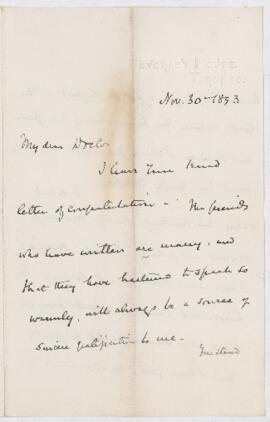 BEVERLEY HOUSE
TORONTO
Nov. 30th 1893
My dear Doctor
I have your kind
letter of congratulation - The friends
who have written are many, and
that they have hastened to speak so
warmly, will always be a source of
sincere gratification to me -